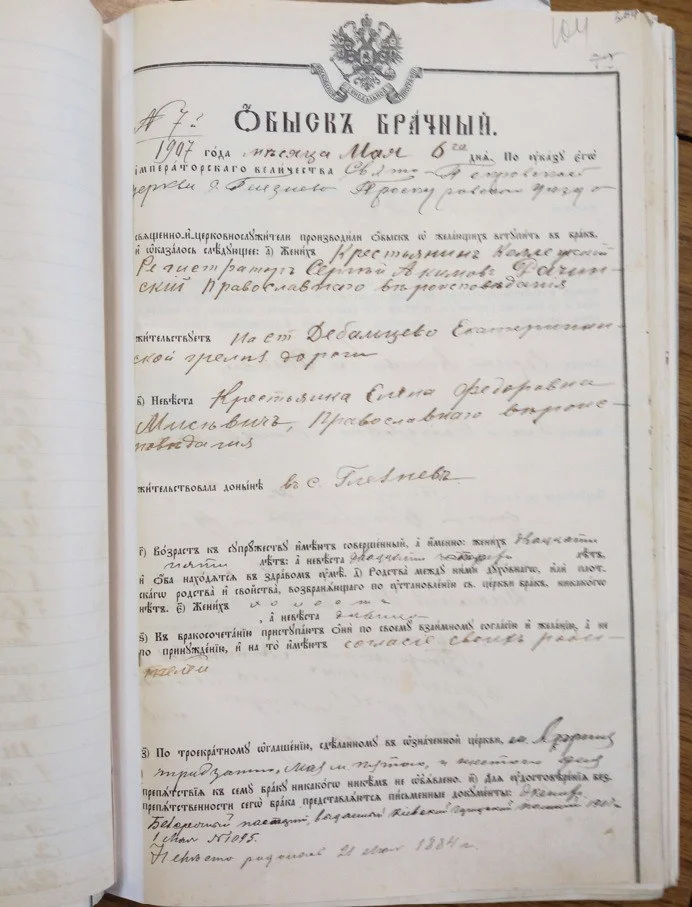 104
№ 7й
ОБЫСКЪ БРАЧНЫЙ.
1907 года мѣсяца Мая 6го дня. По указу его
императорскаго величества Свято-Покровской
церкви с. Проскуровскаго уѣзда
священно-и-церковнослужители производили обыскъ о желающихъ вступить въ бракъ,
и оказалось слѣдующее: а) Женихъ Крестьянинъ Коллежскій
Регистраторъ Сергѣй Акимовъ
скій Православнаго вѣроисповѣданія
жительствуетъ на ст. Дебальцево Екатеринин-
ской желѣз дороги
в) Невѣста Крестьянка Елена Федоровна
Мисѣвичъ, Православнаго вѣроис-
повѣданія
жительствовала донынѣ въ с. Глезневъ
г) Возрастъ къ супружеству имѣютъ совершенный, а именно: женихъ двадцати
пяти лѣтъ: а невѣста двадцати лѣтъ.
и оба находятся въ здравомъ умѣ. д) Родства между ними духовнаго, или плот-
скаго родства и свойства, возбраняющаго по установленію св. церкви бракъ, никакого
нѣтъ. е) Женихъ холостъ
, а невѣста дѣвица
ѕ) Къ бракосочетанію приступаютъ они по своему взаимному согласію и желанію, а не
по принужденію, и на то имѣютъ согласіе своихъ роди-
телей
з) По троекратному оглашенію, сдѣланному въ означенной церкви,
тридцатаго, Мая пятаго, и шестого дня
препятствія къ сему браку никакого никѣмъ не объявлено. и) Для удостовѣренія без-
препятственности сего брака представляются письменные документы:
Безсрочный паспортъ, выданный
1 Мая № 1095.
Невѣста родилась 21 мая 1884 г.